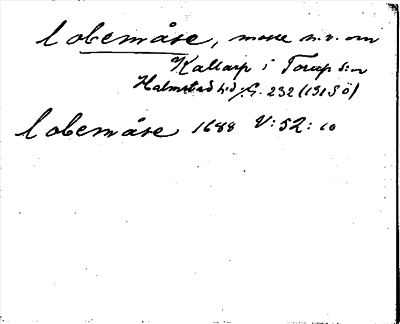 Lobemåse, mosse n.v. om
Kallarp i Torup s:n
Halmstad h:d /G. 232 (191 S ö)
Lobemåse 1688 V:52:10